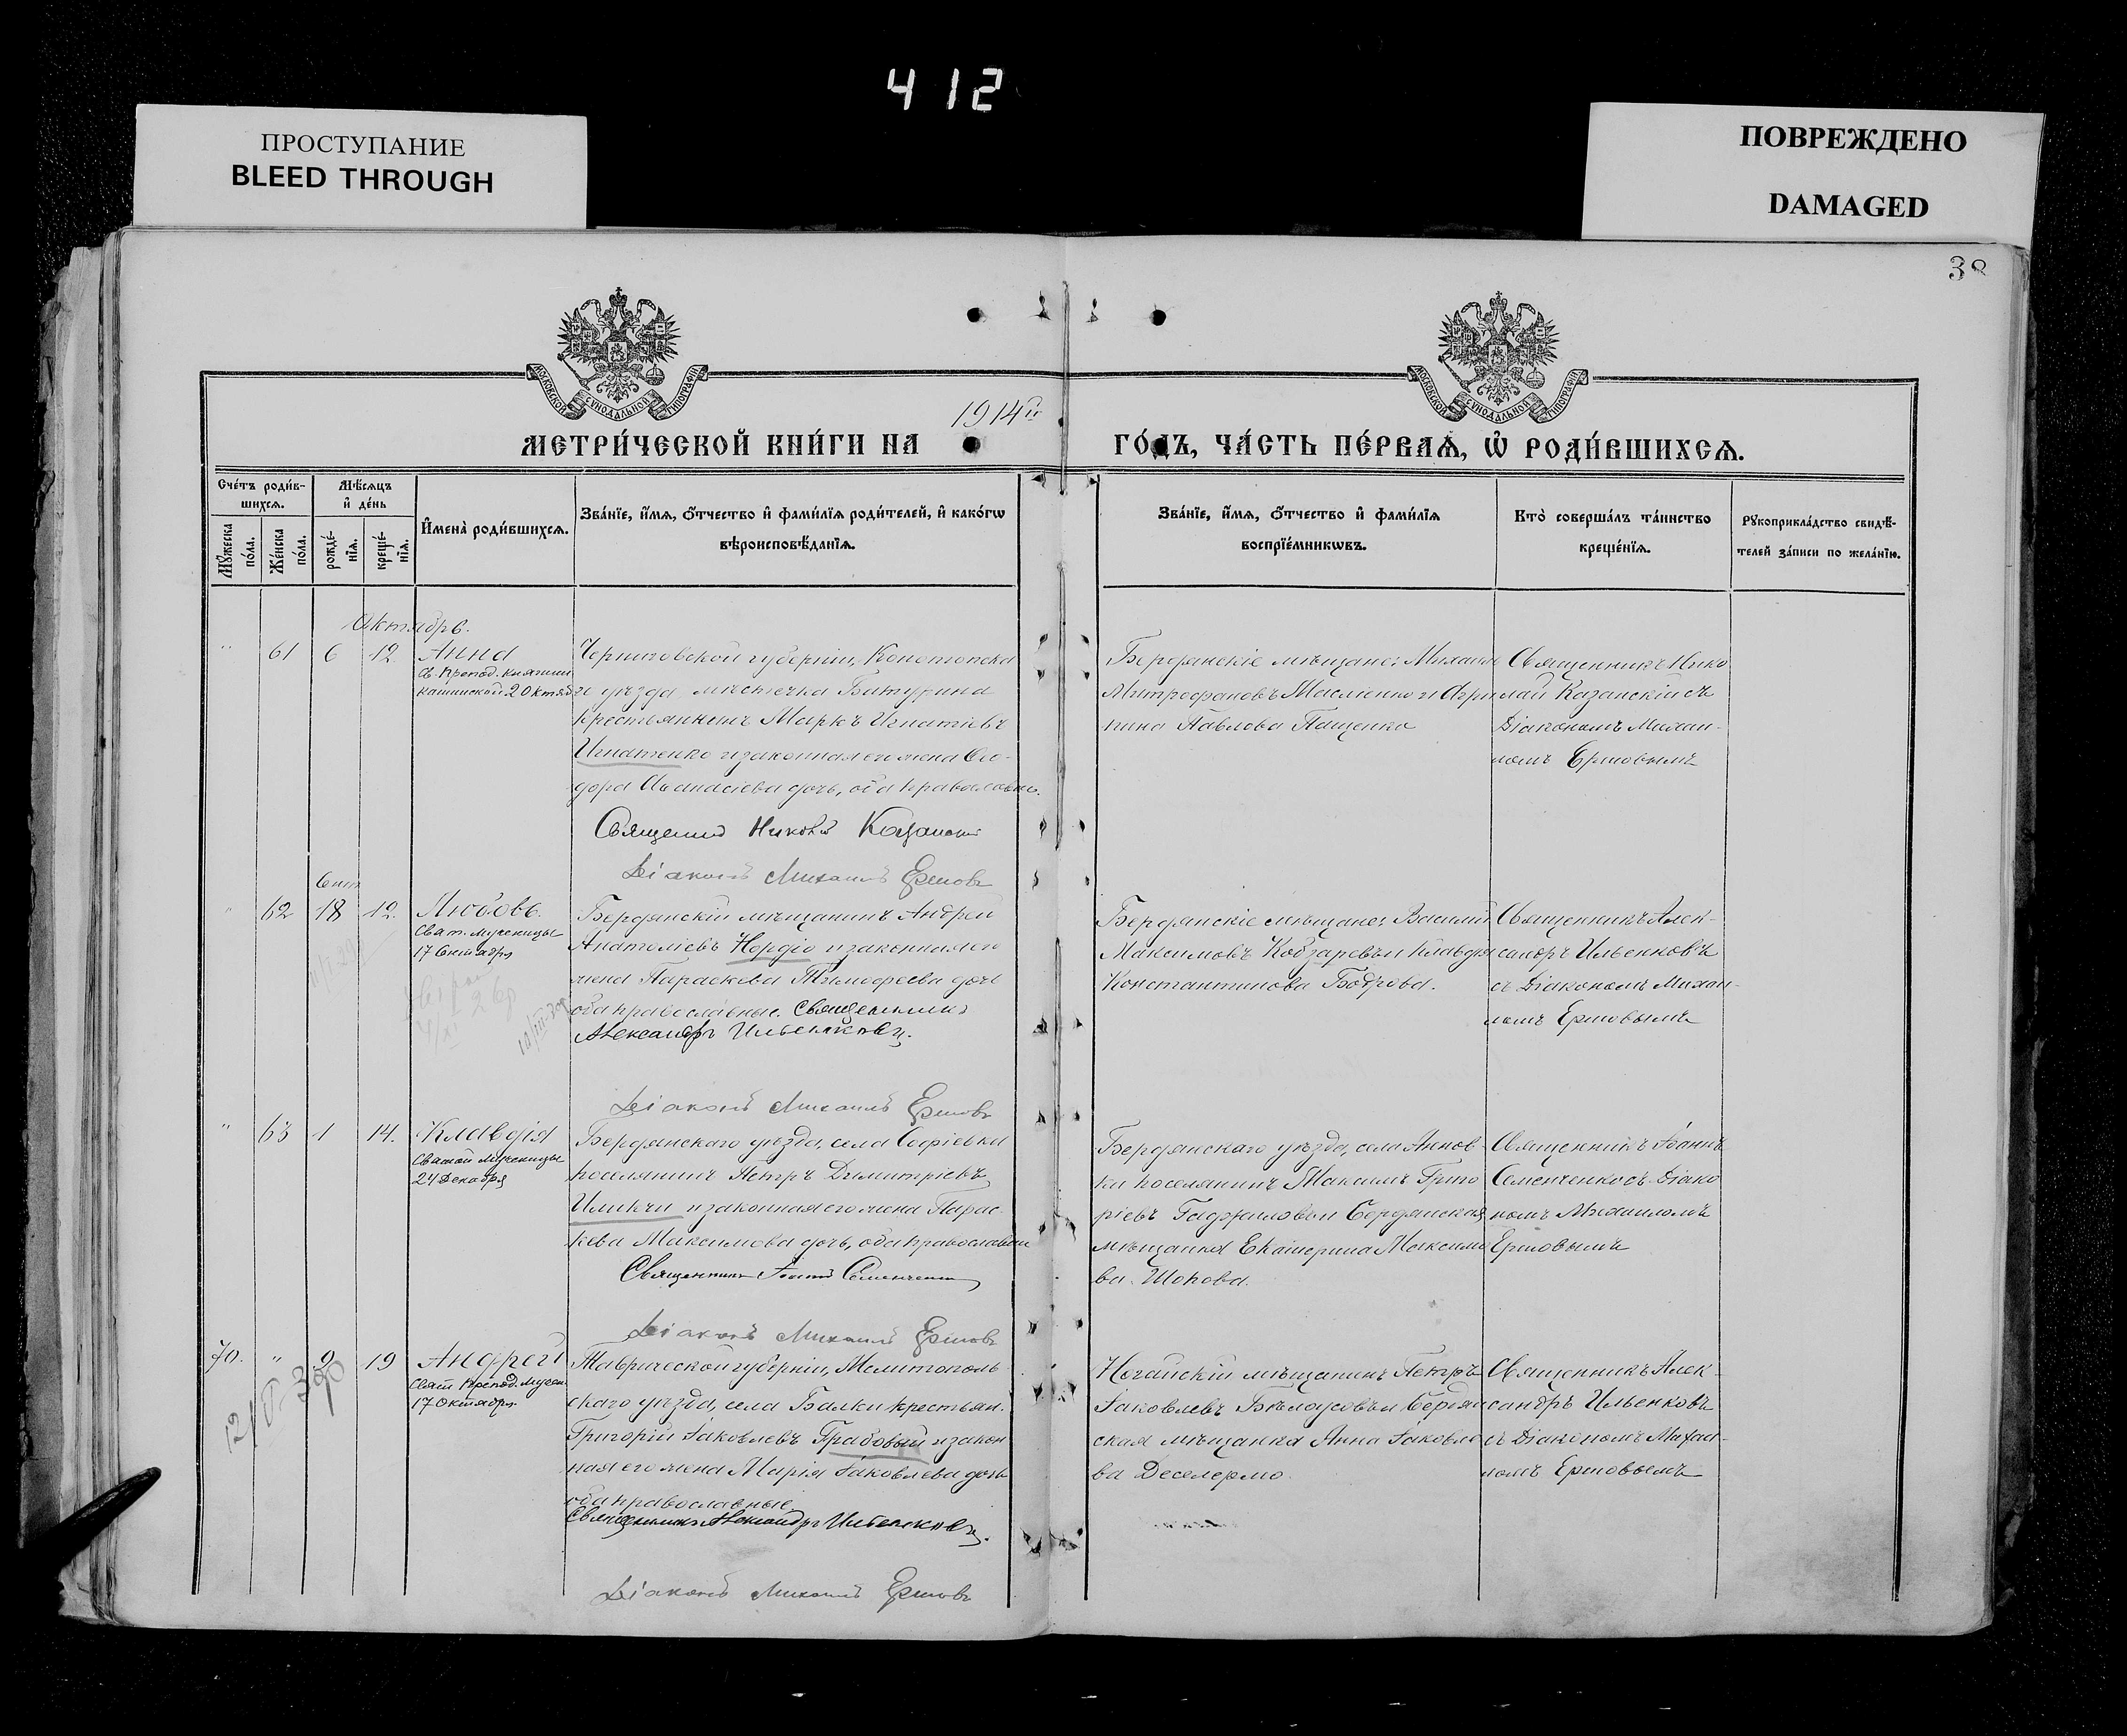 412
ПРОСТУПАНИЕ
BLEED THROUGH
ПОВРЕЖДЕНО
DAMAGED
МОСКОВСКОЙ СѴНОДАЛЬНОЙ ТИПОГРАФІИ
МОСКОВСКОЙ СѴНОДАЛЬНОЙ ТИПОГРАФІИ
1914й
МЕТРИ́ЧЕСКОЙ КНИ́ГИ НА ГО́ДЪ, ЧА́СТЬ ПЕ́РВАѦ, Ѡ҆ РОДИ́ВШИХСѦ.
Сче́тъ роди́в-
шихсѧ.
Мꙋ́жеска по́ла.
Же́нска по́ла.
Мѣ́сѧцъ
и҆ де́нь
рожде́-
нїѧ.
креще́-
нїѧ.
И҆мена̀ роди́вшихсѧ.
Зва́нїе, и҆́мѧ, ѻ҆́тчество и҆ фами́лїѧ роди́телей, и҆ како́гѡ
вѣроисповѣ́данїѧ.
Зва́нїе, и҆́мѧ, ѻ҆́тчество и҆ фами́лїѧ
воспрїе́мникѡвъ.
Кто̀ соверша́лъ та́инство
креще́нїѧ.
Рꙋкоприкла́дство свидѣ́-
телей за́писи по жела́нїю.
Октябрь.
" 61 6 12 Анна
Св. Препод. княгини
Кашинской 2 Октяб
Черниговской губерніи, Конотопска
го уѣзда мѣстечка Батурина
крестьянинъ Маркъ Игнатіевъ
Игнатенко и законная его жена Ѳео-
дора Аѳанасіева дочь, оба православн.
Священникъ Николай Казанскій
Діаконъ Михаилъ Ершовъ
Бердянскіе мѣщане: Михаилъ
Митрофановъ Масліенко и Агри
пина Павлова Пащенко
Священникъ Нико
лай Казанскій съ
Діакономъ Михаи-
ломъ Ершовымъ
Сент
" 62 18 12. Любовь.
Свят. мученицы
17 Сентября
Бердянскій мѣщанинъ Андрей
Анатоліевъ Нордіо и законная его
жена Параскева Тимофеева дочь
оба православные. Священникъ
Александръ Ильенковъ.
Діаконъ Михаилъ Ершовъ
Бердянскіе мѣщане: Василій
Максимовъ Кобзаревъ и Клавдія
Константинова Боброва.
Священникъ Алек-
сандръ Ильенковъ
съ Діакономъ Михаи-
ломъ Ершовымъ
" 63 1 14. Клавдія
Святой мученицы
24 Декабря
Бердянскаго уѣзда, села Софіевки
поселянинъ Петръ Димитріевъ
и законная его жена Парас-
кева Максимова дочь, оба православн
Священникъ Іоаннъ Семенченко
Діаконъ Михаилъ Ершовъ
Бердянскаго уѣзда, села Аннов-
ки поселянинъ Максимъ Григо
ріевъ и Бердянская
мѣщанка Екатерина Максимо
ва Шопова.
Священникъ Іоаннъ
Семенченко съ Діако
номъ Михаиломъ
Ершовымъ
70. " 9 19 Андрей
Свят Препод. Мучен.
17 Октября
Таврической губерніи, Мелитополь-
скаго уѣзда, села Балки крестьян.
Григорій Іаковлевъ Грабовый и закон
ная его жена Марія Іаковлева дочь
оба православные
Священникъ Александръ Ильенковъ.
Діаконъ Михаилъ Ершовъ
Ногайскій мѣщанинъ Петръ
Іаковлевъ Бѣлоусовъ и Бердян
ская мѣщанка Анна Іаковле
ва Деселермо.
Священникъ Алек-
сандръ Ильенковъ
съ Діакономъ Михаи-
ломъ Ершовымъ